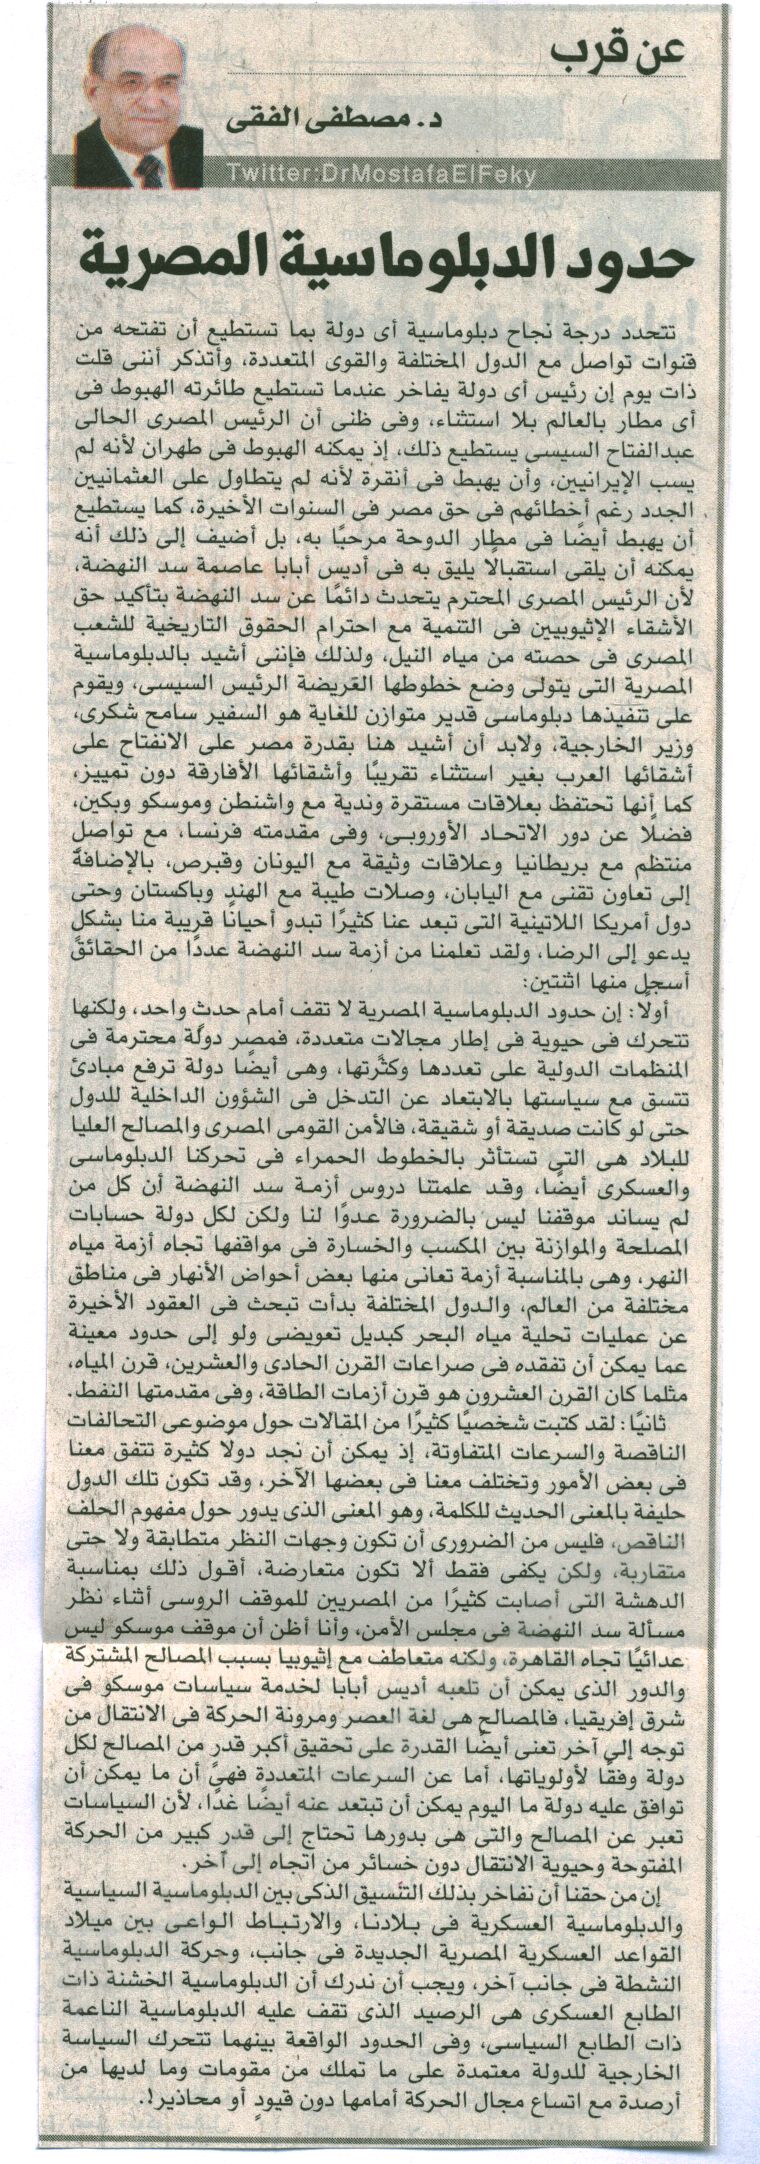 عن قرب
د. مصطفى الفقى
Twitter:DrMostafaElFeky
حدود الدبلوماسية المصرية
تتحدد درجة نجاح دبلوماسية أى دولة بما تستطيع أن تفتحه من
قنوات تواصل مع الدول المختلفة والقوى المتعددة، وأتذكر أننى قلت
ذات يوم إن رئيس أى دولة يفاخر عندما تستطيع طائرته الهبوط فى
أى مطار بالعالم بلا استثناء، وفى ظنى أن الرئيس المصرى الحالى
عبدالفتاح السيسى يستطيع ذلك، إذ يمكنه الهبوط فى طهران لأنه لم
يسب الإيرانيين، وأن يهبط فى أنقرة لأنه لم يتطاول على العثمانيين
الجدد رغم أخطائهم فى حق مصر فى السنوات الأخيرة، كما يستطيع
أن يهبط أيضًا فى مطار الدوحة مرحبًا به، بل أضيف إلى ذلك أنه
يمكنه أن يلقى استقبالًا يليق به فى أديس أبابا عاصمة سد النهضة،
لأن الرئيس المصرى المحترم يتحدث دائمًا عن سد النهضة بتأكيد حق
الأشقاء الإثيوبيين فى التنمية مع احترام الحقوق التاريخية للشعب
المصرى فى حصته من مياه النيل، ولذلك فإننى أشيد بالدبلوماسية
المصرية التى يتولى وضع خطوطها العريضة الرئيس السيسى، ويقوم
على تنفيذها دبلوماسى قدير متوازن للغاية هو السفير سامح شكرى،
وزير الخارجية، ولابد أن أشيد هنا بقدرة مصر على الانفتاح على
أشقائها العرب بغير استثناء تقريبًا وأشقائها الأفارقة دون تمييز،
كما أنها تحتفظ بعلاقات مستقرة وندية مع واشنطن وموسكو وبكين،
فضلًا عن دور الاتحاد الأوروبى، وفى مقدمته فرنسا، مع تواصل
منتظم مع بريطانيا وعلاقات وثيقة مع اليونان وقبرص، بالإضافة
إلى تعاون تقنى مع اليابان، وصلات طيبة مع الهند وباكستان وحتى
دول أمريكا اللاتينية التى تبعد عنا كثيرًا تبدو أحيانًا قريبة منا بشكل
يدعو إلى الرضا، ولقد تعلمنا من أزمة سد النهضة عددًا من الحقائق
أسجل منها اثنتين:
أولًا: إن حدود الدبلوماسية المصرية لا تقف أمام حدث واحد، ولكنها
تتحرك فى حيوية فى إطار مجالات متعددة، فمصر دولة محترمة فى
المنظمات الدولية على تعددها وكثرتها، وهى أيضًا دولة ترفع مبادئ
تتسق مع سياستها بالابتعاد عن التدخل فى الشؤون الداخلية للدول
حتى لو كانت صديقة أو شقيقة، فالأمن القومى المصرى والمصالح العليا
للبلاد هى التى تستأثر بالخطوط الحمراء فى تحركنا الدبلوماسى
والعسكرى أيضًا، وقد علمتنا دروس أزمة سد النهضة أن كل من
لم يساند موقفنا ليس بالضرورة عدوًا لنا ولكن لكل دولة حسابات
المصلحة والموازنة بين المكسب والخسارة فى مواقفها تجاه أزمة مياه
النهر، وهى بالمناسبة أزمة تعانى منها بعض أحواض الأنهار فى مناطق
مختلفة من العالم، والدول المختلفة بدأت تبحث فى العقود الأخيرة
عن عمليات تحلية مياه البحر كبديل تعويضى ولو إلى حدود معينة
عما يمكن أن تفقده فى صراعات القرن الحادى والعشرين، قرن المياه،
مثلما كان القرن العشرون هو قرن أزمات الطاقة، وفى مقدمتها النفط.
ثانيًا: لقد كتبت شخصيًا كثيرًا من المقالات حول موضوعى التحالفات
الناقصة والسرعات المتفاوتة، إذ يمكن أن نجد دولًا كثيرة تتفق معنا
فى بعض الأمور وتختلف معنا فى بعضها الآخر، وقد تكون تلك الدول
حليفة بالمعنى الحديث للكلمة، وهو المعنى الذى يدور حول مفهوم الحلف
الناقص، فليس من الضرورى أن تكون وجهات النظر متطابقة ولا حتى
متقاربة، ولكن يكفى فقط ألا تكون متعارضة، أقول ذلك بمناسبة
الدهشة التى أصابت كثيرًا من المصريين للموقف الروسى أثناء نظر
مسألة سد النهضة فى مجلس الأمن، وأنا أظن أن موقف موسكو ليس
عدائيًا تجاه القاهرة، ولكنه متعاطف مع إثيوبيا بسبب المصالح المشتركة
والدور الذى يمكن أن تلعبه أديس أبابا لخدمة سياسات موسكو فى
شرق إفريقيا، فالمصالح هى لغة العصر ومرونة الحركة فى الانتقال من
توجه إلى آخر تعنى أيضًا القدرة على تحقيق أكبر قدر من المصالح لكل
دولة وفقًا لأولوياتها، أما عن السرعات المتعددة فهى أن ما يمكن أن
توافق عليه دولة ما اليوم يمكن أن تبتعد عنه أيضًا غدًا، لأن السياسات
تعبر عن المصالح والتى هى بدورها تحتاج إلى قدر كبير من الحركة
المفتوحة وحيوية الانتقال دون خسائر من اتجاه إلى آخر.
إن من حقنا أن نفاخر بذلك التنسيق الذكى بين الدبلوماسية السياسية
والدبلوماسية العسكرية فى بلادنا، والارتباط الواعى بين ميلاد
القواعد العسكرية المصرية الجديدة فى جانب، وحركة الدبلوماسية
النشطة فى جانب آخر، ويجب أن ندرك أن الدبلوماسية الخشنة ذات
الطابع العسكرى هى الرصيد الذى تقف عليه الدبلوماسية الناعمة
ذات الطابع السياسى، وفى الحدود الواقعة بينهما تتحرك السياسة
الخارجية للدولة معتمدة على ما تملك من مقومات وما لديها من
أرصدة مع اتساع مجال الحركة أمامها دون قيودٍ أو محاذير!.